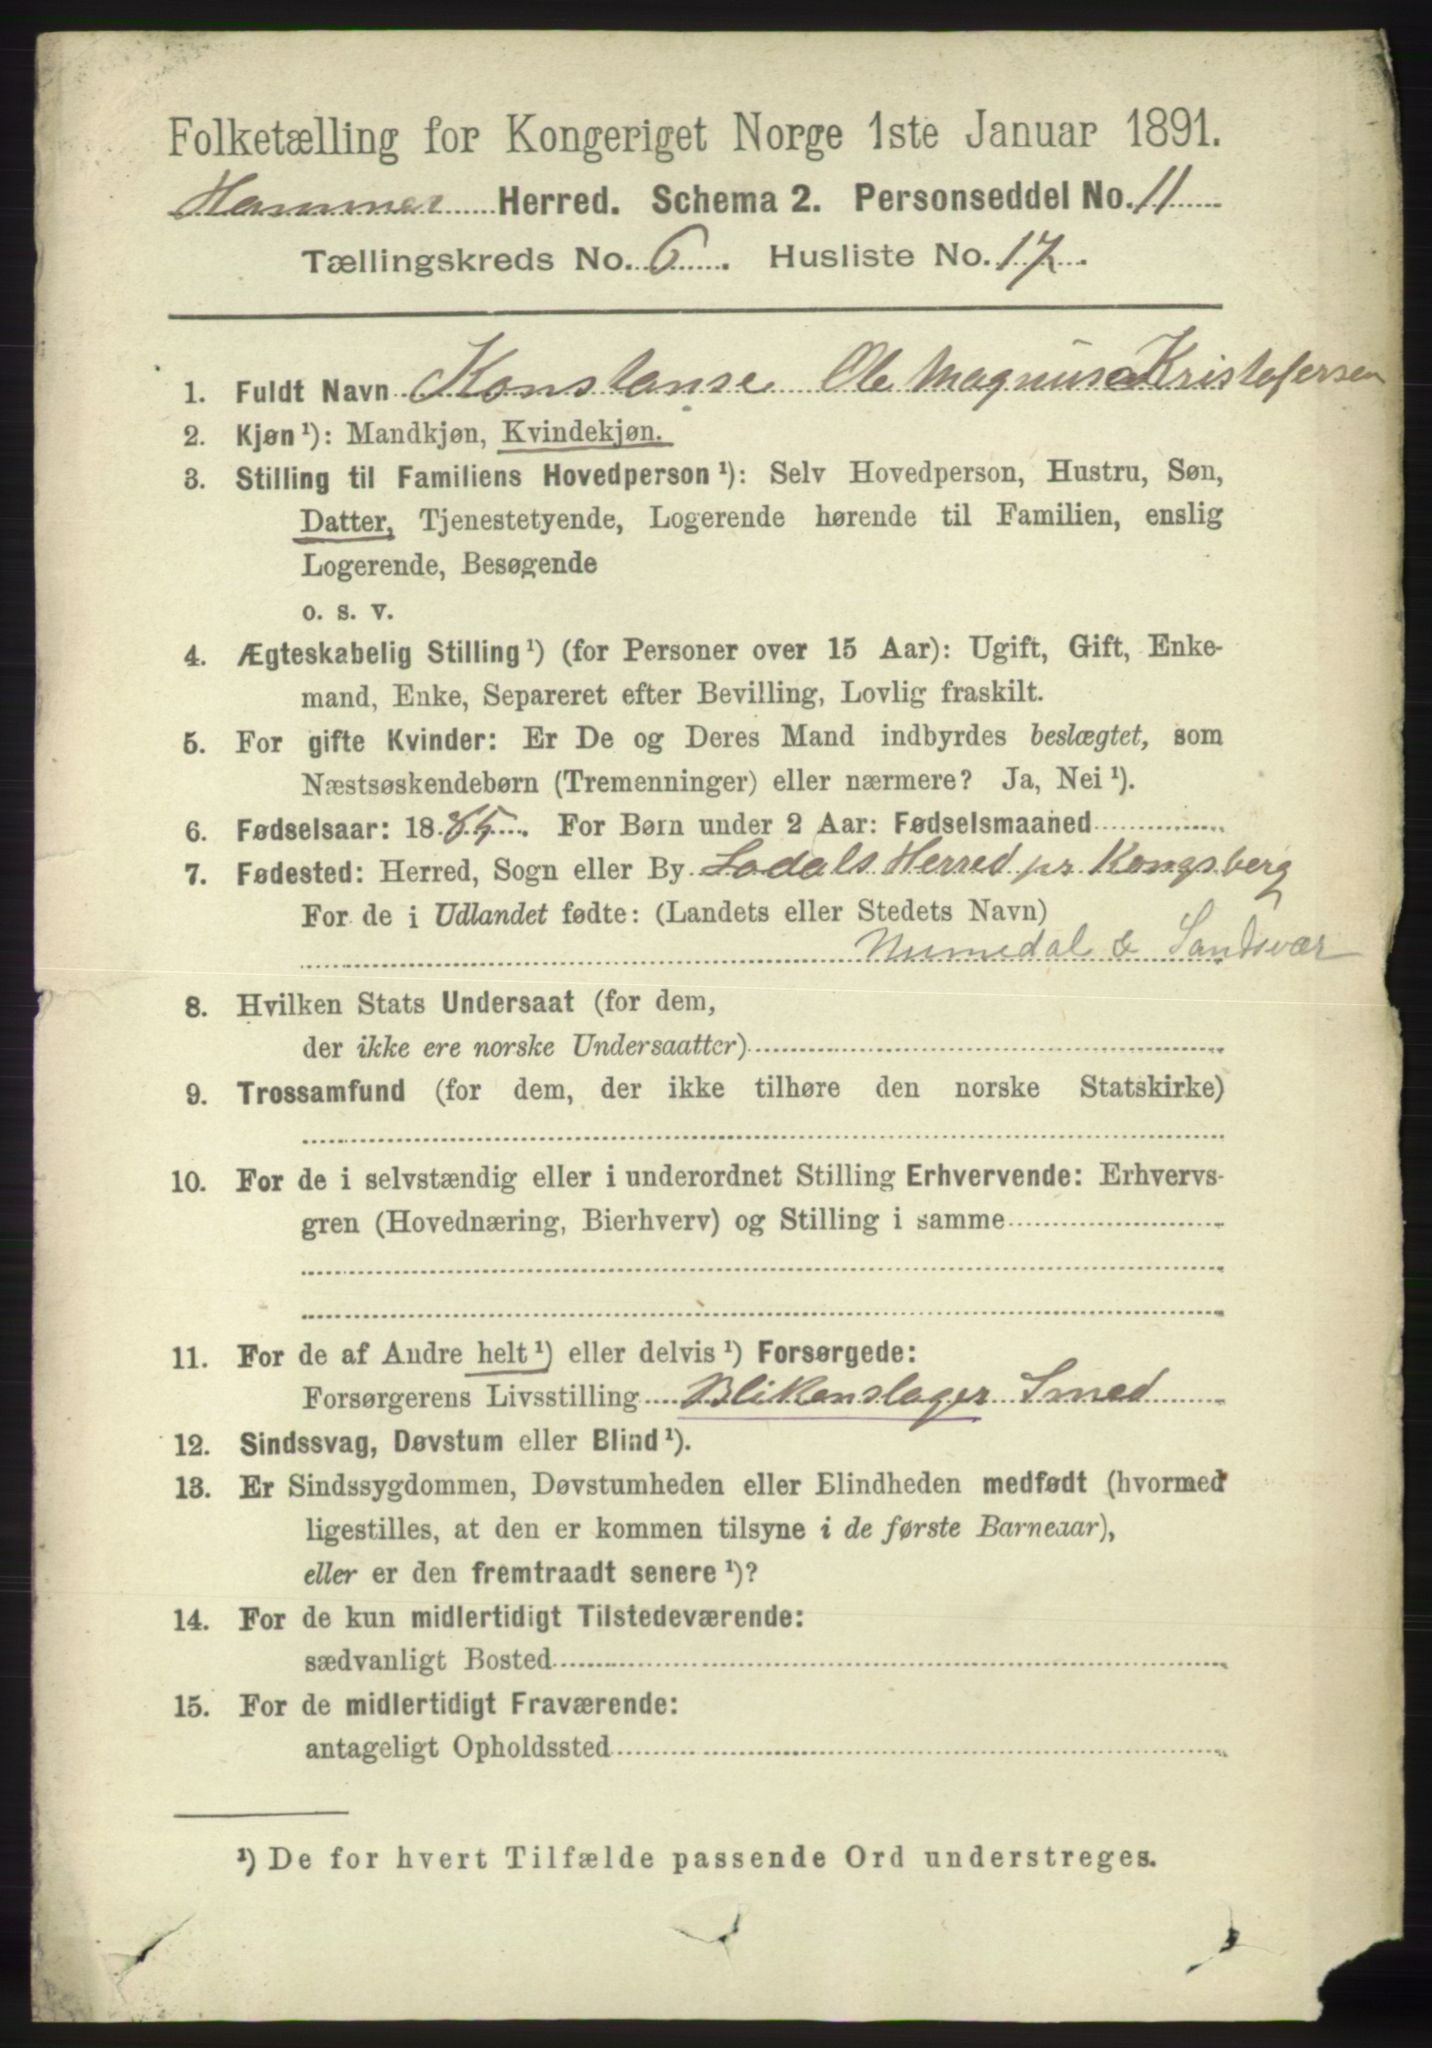 Folketælling for Kongeriget Norge 1ste Januar 1891.
Hammer Herred. Schema 2. Personseddel No. 11
Tællingskreds No. 6. Husliste No. 17.
1. Fuldt Navn Konstanse Ole Magnusa Kristofersen
2. Kjøn ¹): Mandkjøn, Kvindekjøn.
3. Stilling til Familiens Hovedperson ¹): Selv Hovedperson, Hustru, Søn,
Datter, Tjenestetyende, Logerende hørende til Familien, enslig
Logerende, Besøgende
o. s. v.
4. Ægteskabelig Stilling ¹) (for Personer over 15 Aar): Ugift, Gift, Enke-
mand, Enke, Separeret efter Bevilling, Lovlig fraskilt.
5. For gifte Kvinder: Er De og Deres Mand indbyrdes beslægtet, som
Næstsøskendebørn (Tremenninger) eller nærmere? Ja, Nei ¹).
6. Fødselsaar: 1885. For Børn under 2 Aar: Fødselsmaaned
7. Fødested: Herred, Sogn eller By Lodals Herred pr Kongsberg
For de i Udlandet fødte: (Landets eller Stedets Navn)
Numedal & Sandsvær
8. Hvilken Stats Undersaat (for dem,
der ikke ere norske Undersaatter)
9. Trossamfund (for dem, der ikke tilhøre den norske Statskirke)
10. For de i selvstændig eller i underordnet Stilling Erhvervende: Erhvervs-
gren (Hovednæring, Bierhverv) og Stilling i samme
11. For de af Andre helt ¹) eller delvis ¹) Forsørgede:
Forsørgerens Livsstilling Blikenslager Smed
12. Sindssvag, Døvstum eller Blind ¹).
13. Er Sindssygdommen, Døvstumheden eller Blindheden medfødt (hvormed
ligestilles, at den er kommen tilsyne i de første Barneaar),
eller er den fremtraadt senere ¹)?
14. For de kun midlertidigt Tilstedeværende:
sædvanligt Bosted
15. For de midlertidigt Fraværende:
antageligt Opholdssted
¹) De for hvert Tilfælde passende Ord understreges.